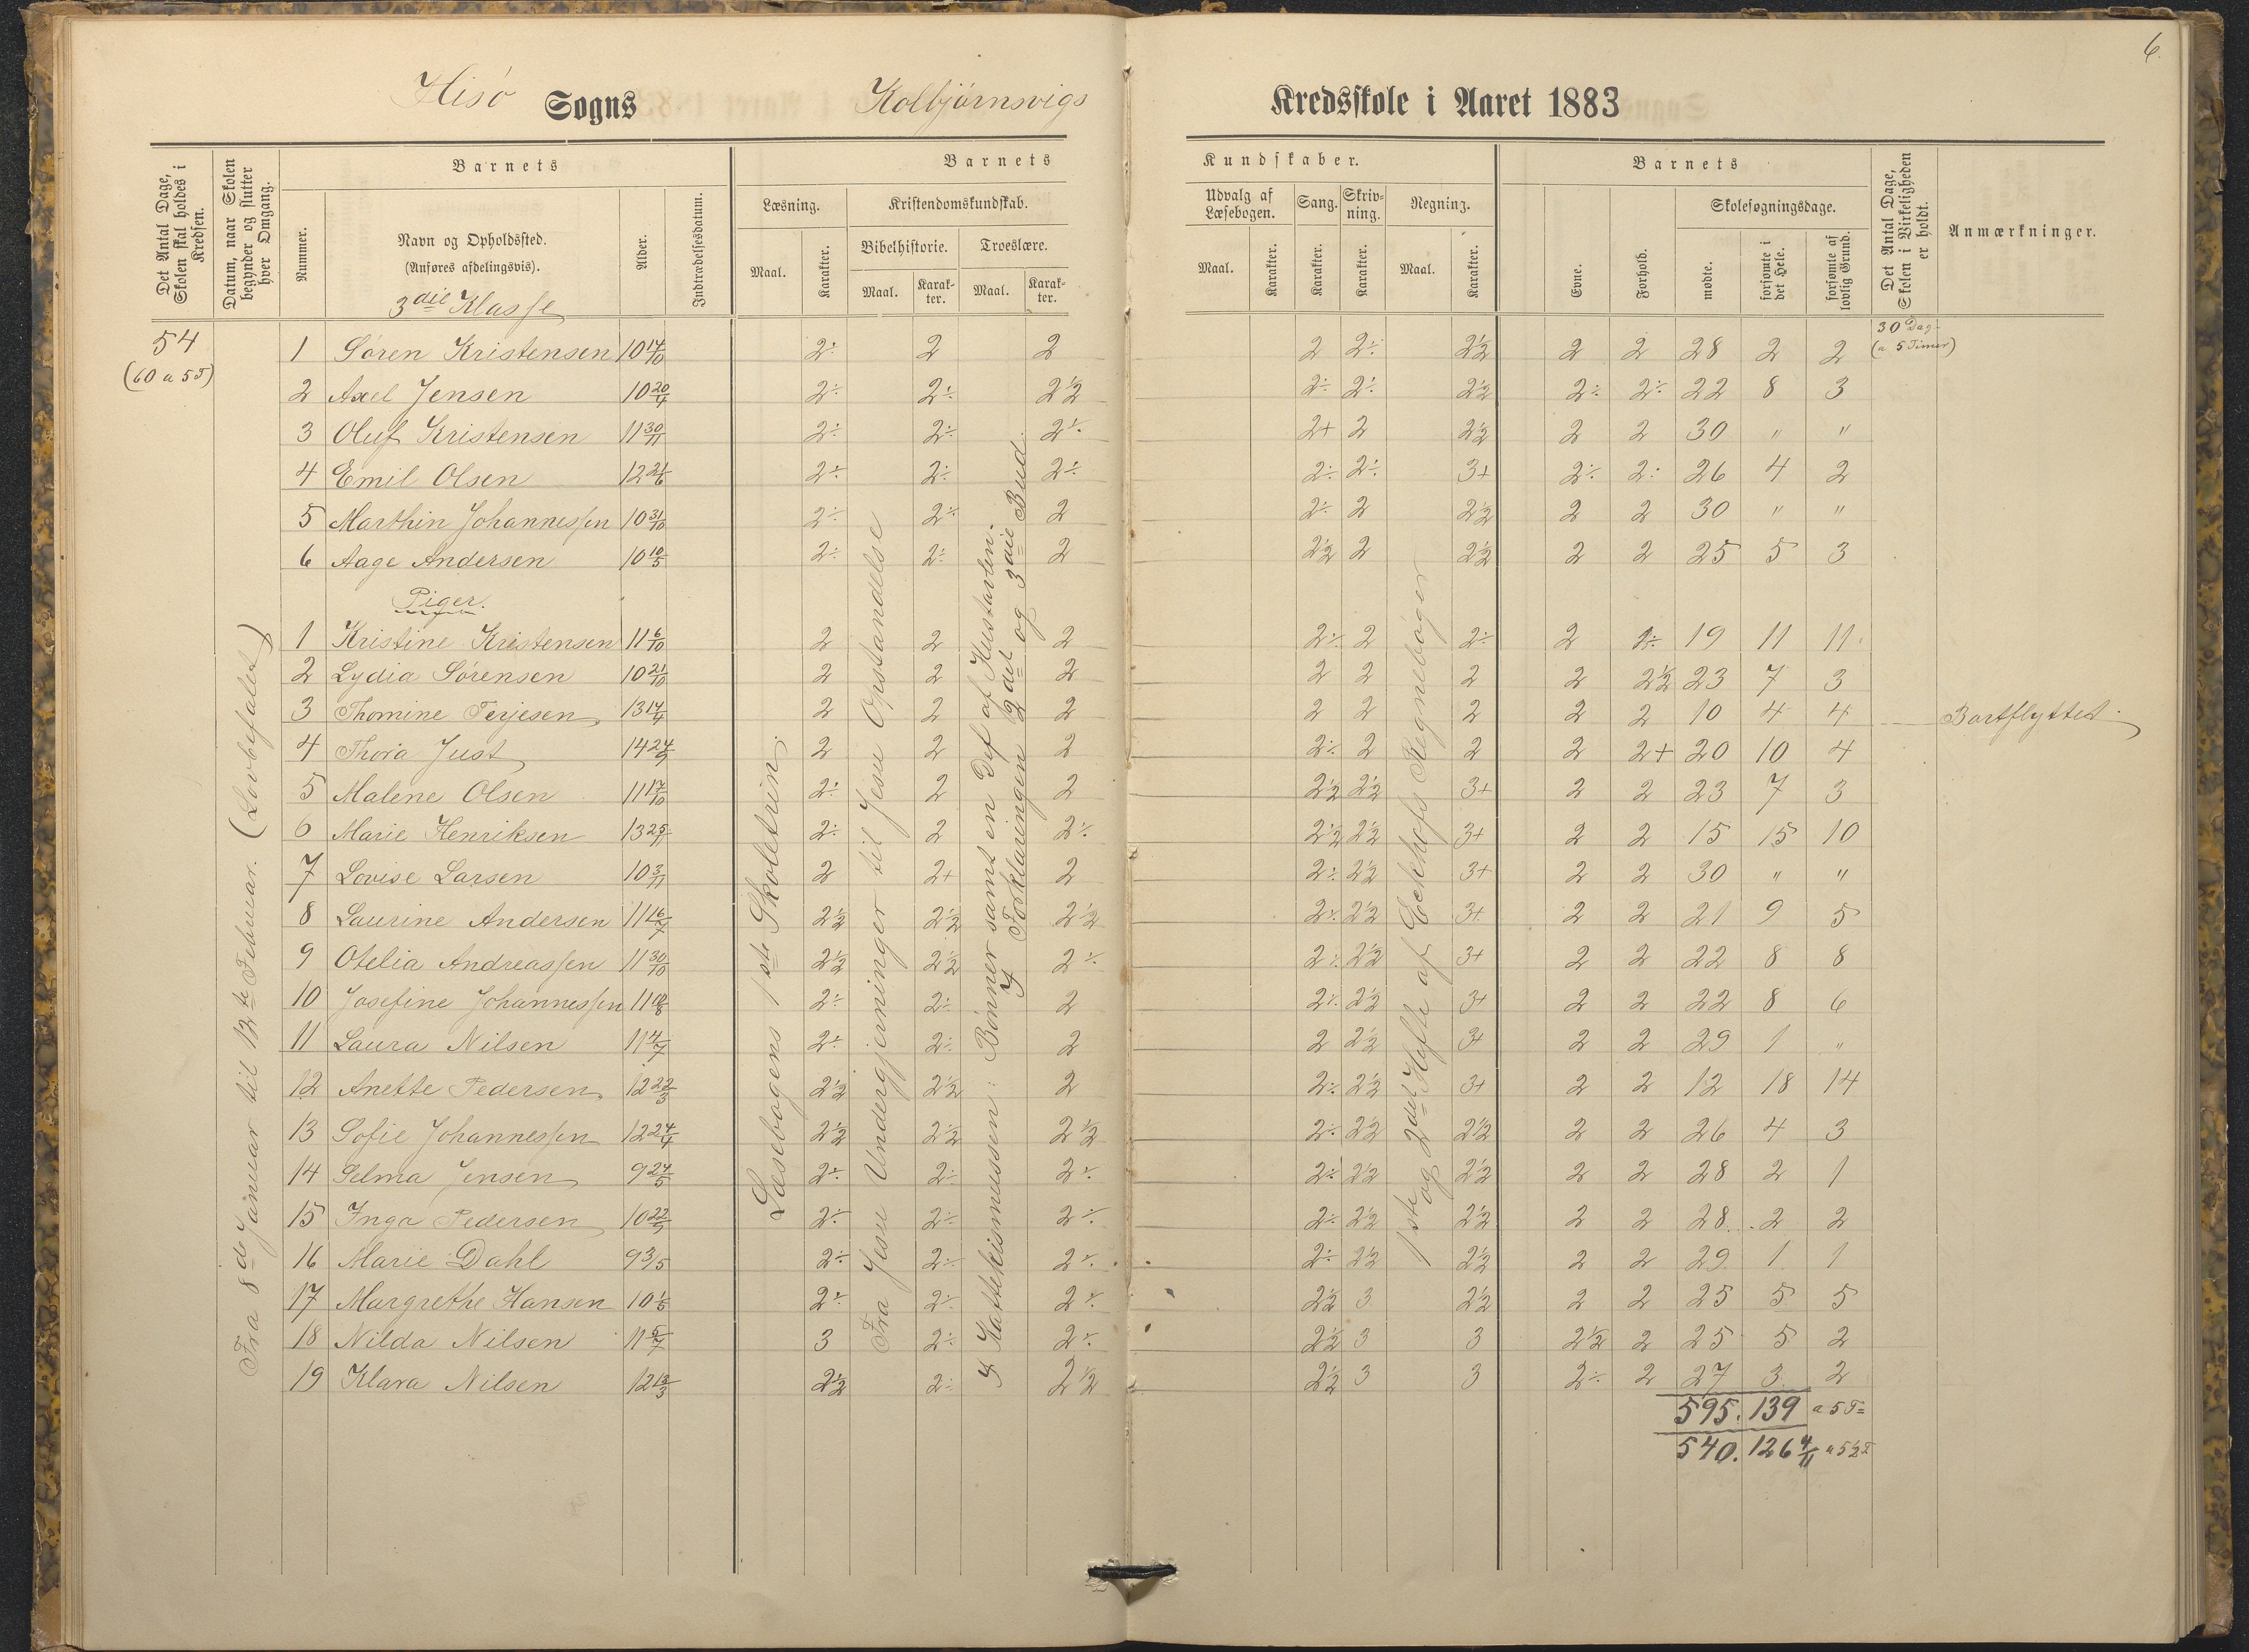 6.
Hisö Sogns Kolbjörnsvigs Kredsskole i Aaret 1883
Det Antal Dage, Skolen skal holdes i Kredsen.
Datum, naar Skolen begynder og slutter hver Omgang.
Barnets
Nummer.
Navn og Opholdssted.
(Anføres afdelingsvis).
3die Klasse
Alder.
Indtrædelsesdatum.
Barnets Kundskaber.
Læsning.
Maal.
Karakter.
Kristendomskundskab.
Bibelhistorie.
Maal.
Karakter.
Troeslære.
Maal.
Karakter.
Udvalg af Læsebogen.
Maal.
Karakter.
Sang.
Karakter.
Skrivning.
Karakter.
Regning.
Maal.
Karakter.
Barnets
Evne.
Forhold.
Skolesøgningsdage.
mødte.
forsømte i det Hele.
forsømte af lovlig Grund.
Det Antal Dage, Skolen i Virkeligheden er holdt.
Anmærkninger.
54
(60 a 5 T)
30 Dag-
(a 5 Timer)
Fra 8de Januar til 12te Februar. (Lovbefalet)
Læsebogens 1ste Skoletrin.
Fra Jesu Undergjerninger til Jesu Opstandelse
I Kattekismussen: Bönner samt en Del af Hustavlen.
I Forklaringen 2det og 3die Bud.
1ste og 2det Hefte af Eckhofs Regneböger
1 Sören Kristensen 10 14/10 2÷ 2 2 2 2÷ 2½ 2 2 28 2 2
2 Axel Jensen 10 20/4 2÷ 2÷ 2½ 2÷ 2÷ 2½ 2÷ 2÷ 22 8 3
3 Oluf Kristensen 11 30/11 2÷ 2÷ 2÷ 2+ 2 2½ 2 2 30 " "
4 Emil Olsen 12 21/6 2÷ 2÷ 2÷ 2÷ 2÷ 3+ 2÷ 2÷ 26 4 2
5 Marthin Johannessen 10 31/10 2÷ 2÷ 2 2÷ 2 2½ 2 2 30 " "
6 Aage Andersen 10 10/5 2÷ 2÷ 2 2½ 2 2½ 2 2 25 5 3
Piger.
1 Kristine Kristensen 11 6/10 2 2 2 2÷ 2 2÷ 2 2÷ 19 11 11
2 Lydia Sörensen 10 21/10 2 2 2 2 2 2 2 2½ 23 7 3
3 Thomine Terjesen 13 14/4 2 2 2 2 2 2 2 2 10 4 4 Bortflyttet.
4 Thora Just 14 24/9 2 2 2 2÷ 2 2 2 2+ 20 10 4
5 Malene Olsen 11 17/10 2÷ 2 2 2½ 2½ 3+ 2 2 23 7 3
6 Marie Henriksen 13 25/11 2÷ 2 2÷ 2½ 2½ 3+ 2 2 15 15 10
7 Lovise Larsen 10 3/11 2 2+ 2 2÷ 2½ 3+ 2 2 30 " "
8 Laurine Andersen 11 16/7 2½ 2½ 2½ 2÷ 2½ 3+ 2 2 21 9 5
9 Otelia Andreassen 11 30/10 2½ 2½ 2÷ 2÷ 2½ 3+ 2 2 22 8 8
10 Josefine Johannessen 11 18/8 2÷ 2÷ 2 2÷ 2½ 3+ 2 2 22 8 6
11 Laura Nilsen 11 4/7 2÷ 2÷ 2 2 2½ 3+ 2 2 29 1 "
12 Anette Pedersen 12 22/3 2½ 2½ 2 2÷ 2½ 3+ 2 2 12 18 14
13 Sofie Johannessen 12 24/4 2½ 2½ 2½ 2÷ 2½ 2½ 2 2 26 4 3
14 Selma Jensen 9 24/5 2÷ 2÷ 2÷ 2÷ 2½ 2½ 2 2 28 2 1
15 Inga Pedersen 10 22/9 2÷ 2÷ 2÷ 2÷ 2½ 2½ 2 2 28 2 2
16 Marie Dahl 9 3/5 2÷ 2÷ 2÷ 2÷ 2½ 2½ 2 2 29 1 1
17 Margrethe Hansen 10 1/5 2÷ 2÷ 2÷ 2½ 3 2½ 2 2 25 5 5
18 Nilda Nilsen 11 5/7 3 2÷ 2÷ 2½ 3 3 2½ 2 25 5 2
19 Klara Nilsen 12 13/3 2½ 2÷ 2½ 2½ 3 3 2÷ 2 27 3 2
595. 139 a 5 T=
540. 126 4/11 a 5½ T